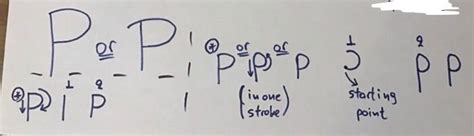 P or P
* P or P or P 1 2 P P
* P 1 2 P (in one stroke) starting point